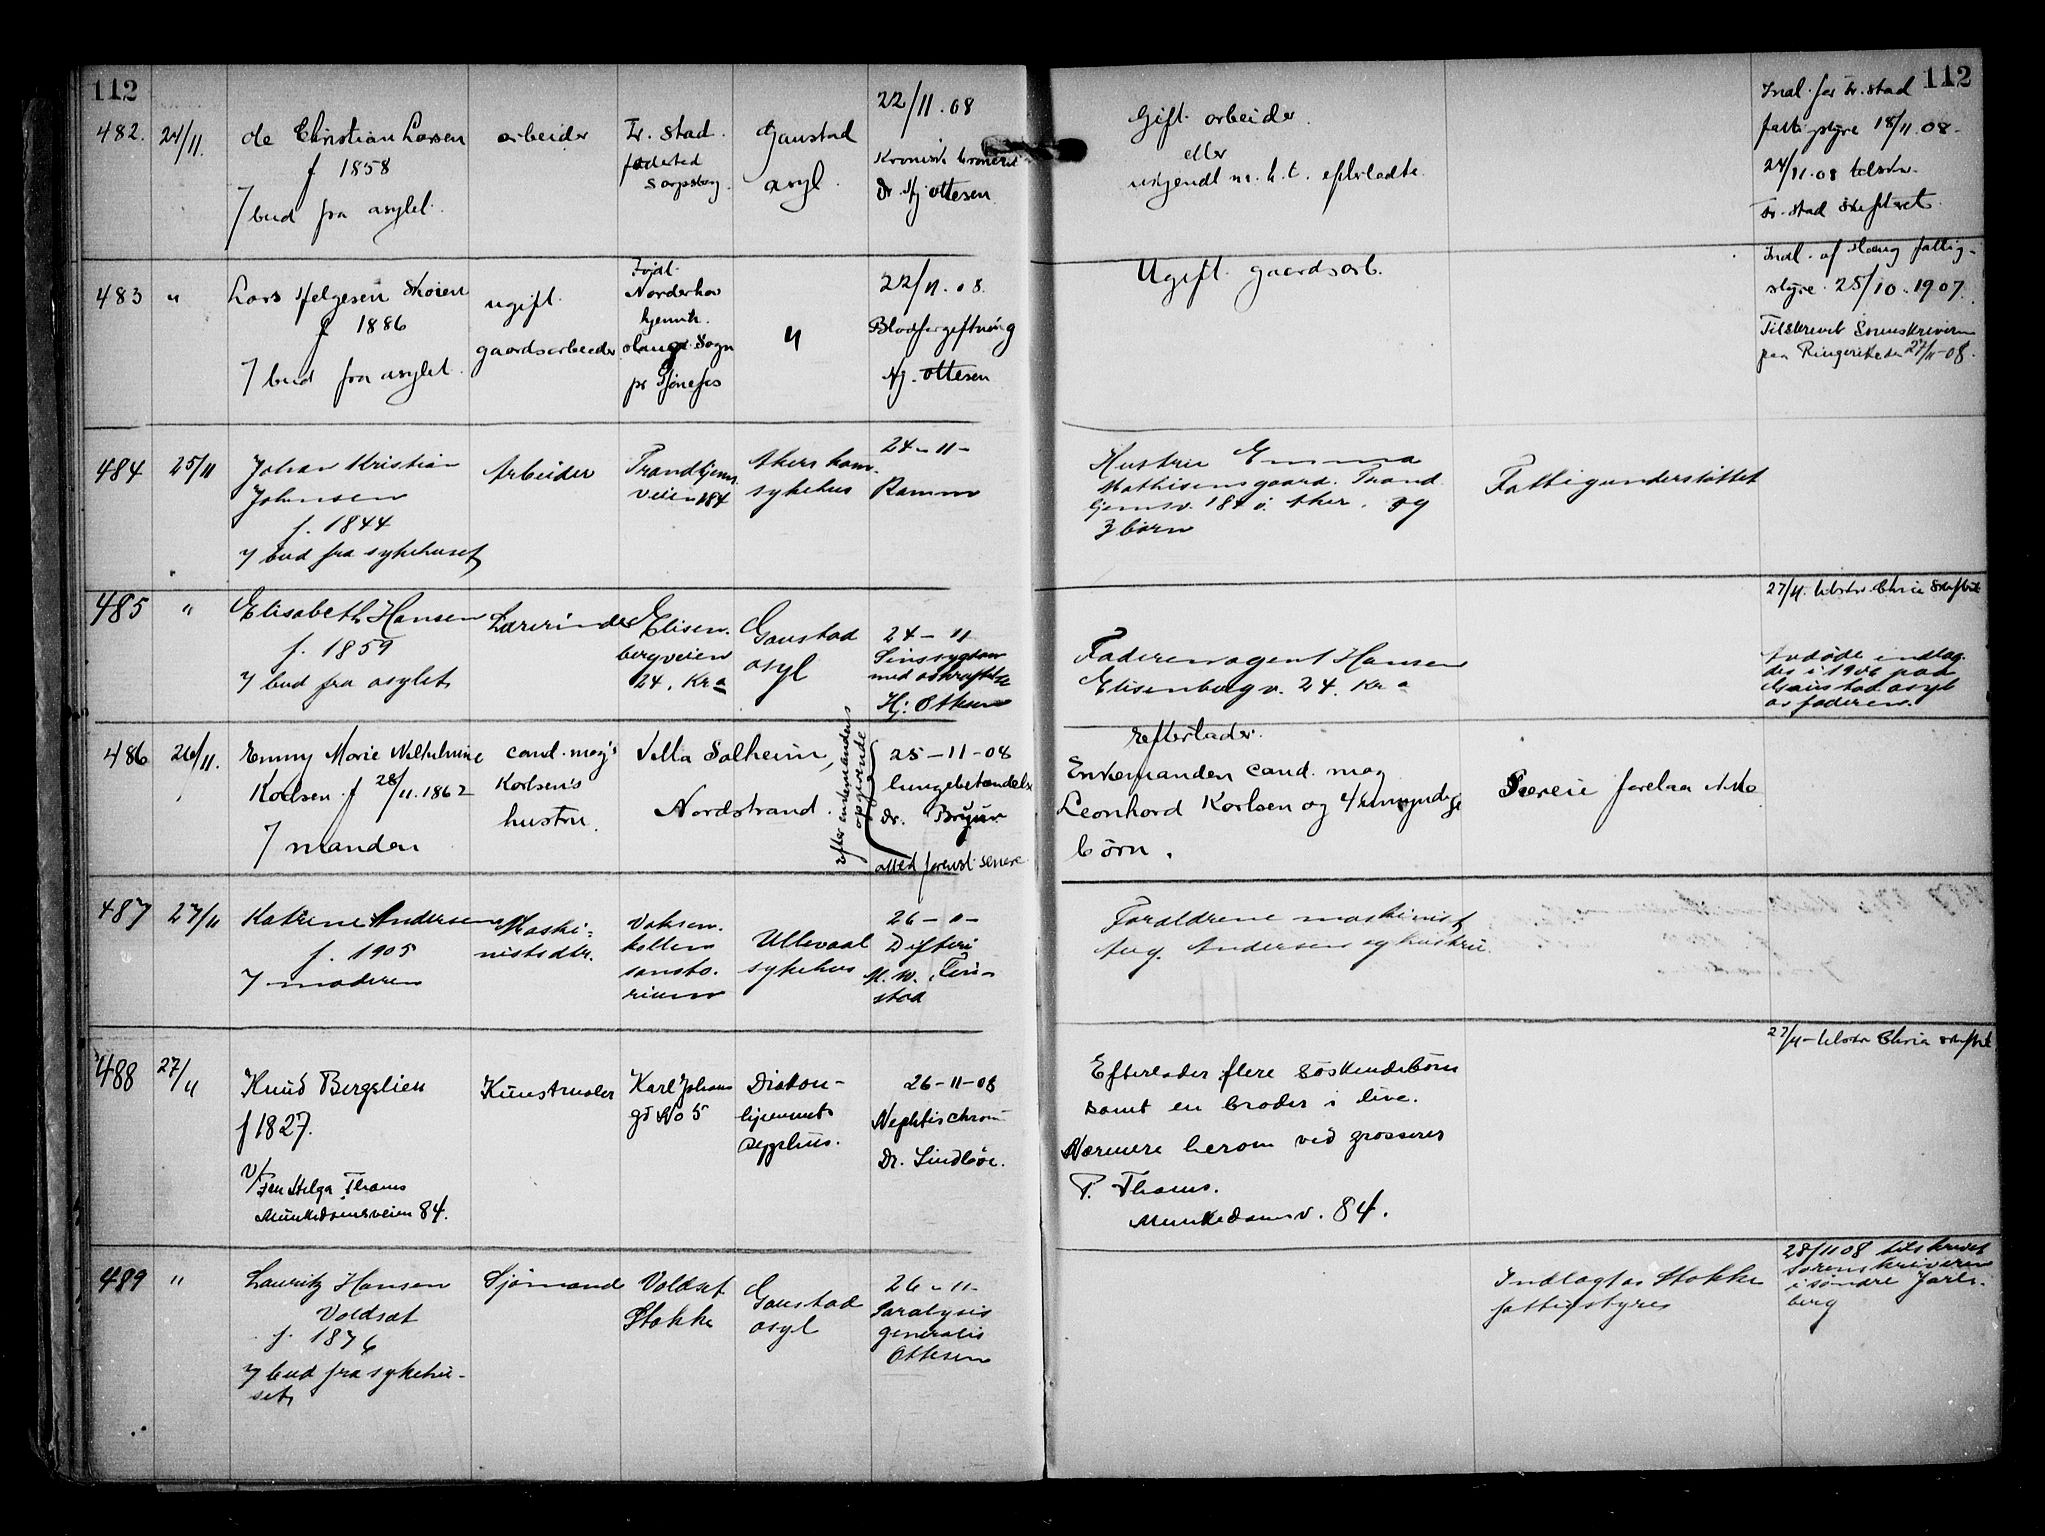 112
112
482. 24/11. Ole Christian Larsen
f 1858
bud fra asylet.
arbeider
Fr. stad.
fødested
Sarpsborg.
Gaustad
asyl.
22/11.08
Kronisk
Dr. Hj. Ottesen
Gift. arbeider.
eller
m. h. t. efterladte
Indl. for Fr. stad
fattigstyre 18/11.08.
24/11.08 tilskr.
Fr. stad skifteret.
483 " Lars Helgesen Skoien
f 1886
bud fra asylet.
ugift
gaardsarbeider
Født.
Norderhov
hjemh.
Sogn
pr Hønefos
"
22/11.08.
Blodforgiftning
Hj. Ottesen
Ugift. gaardsarb.
Indl. af Haug fattig-
styre. 25/10.1907.
Tilskrevet Sorenskriveren
paa Ringerike den 27/11-08.
484 25/11 Johan Kristian
Johnsen
f. 1844
bud fra sykehuset
Arbeider
Trondhjems
veien 184
Akers kom.
sykehus
24-11-
Ramm
Hustru Emma
Mathisensgaard. Trond
hjemsv. 184 i Aker. og
3 børn
Fattigunderstøttet
485 " Elisabeth Hansen
f. 1859
bud fra asylet
Lærerinde
Elisen.
bergveien
24. Kr a
Gaustad
asyl
24-11
Sinssygdom
med
Hj: Ottesen
Faderen agent Hansen
Elisenberg v. 24. Kr a
27/11. tilskr. Chria Skifteret
Avdøde indlag.
des i 1906 paa
Gaustad asyl
av faderen.
486 26/11. Emmy Marie Wilhelmine
Karlsen f 28/11.1862
manden
cand. mag's
Karlsen's
hustru.
Villa Solheim,
Nordstrand.
efter enkemandens
opgivende
25-11-08
lungebetændelse
dr. Bruun
attest forevist senere
Efterlader.
Enkemanden cand. mag
Leonhard Karlsen og 4 umyndige
børn.
Særeie forelaa ikke
487 27/11 Katrine Andersen
f. 1905
moderen
Maski=
nistsdtr.
Voksen.
kollen
sanato.
rium
Ullevaal
sykehus
26-11-
Difteri
Forældrene maskinist
Aug. Andersen og hustru.
488 27/11 Knud Bergslien
f 1827.
v/
Fru Helga Thams
Munkedamsveien 84.
Kunstmaler
Karl Johans
gt No 5
Diakon-
hjemmets
sygehus.
26-11-08
Dr. Lindboe.
Efterlader flere søskendebørn
samt en broder i live.
Nærmere herom ved grosserer
P. Thams.
Munkedamsv. 84.
27/11- tilskr Chria skifteret
489 " Lauritz Hansen
Voldsæt
f. 1876
bud fra sykehu-
set
Sjømand
Voldsæt
Stokke
Gaustad
asyl
26-11-
Paralysis
generalis
Ottesen
Indlagt av Stokke
fattigstyre
28/11 08 tilskrevet
Sorenskriveren
i søndre Jarls.
berg